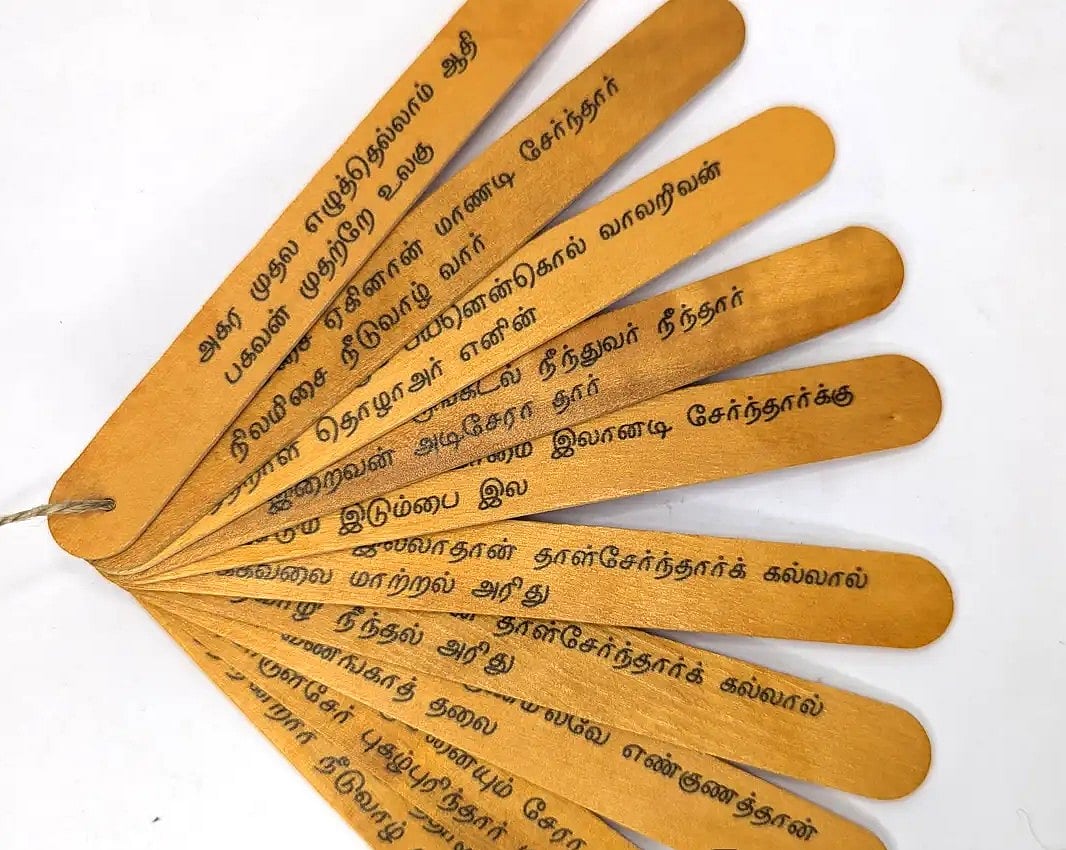 அகர முதல எழுத்தெல்லாம் ஆதி
பகவன் முதற்றே உலகு
ஏகினான் மாணடி சேர்ந்தார்
நிலமிசை நீடுவாழ் வார்
வாலறிவன்
தொழாஅர் எனின்
நீந்துவர் நீந்தார்
இறைவன் அடிசேரா தார்
இலானடி சேர்ந்தார்க்கு
இடும்பை இல
தாள்சேர்ந்தார்க் கல்லால்
மாற்றல் அரிது
தாள்சேர்ந்தார்க் கல்லால்
நீந்தல் அரிது
எண்குணத்தான்
தலை
புகழ்புரிந்தார்
நீடுவாழ்